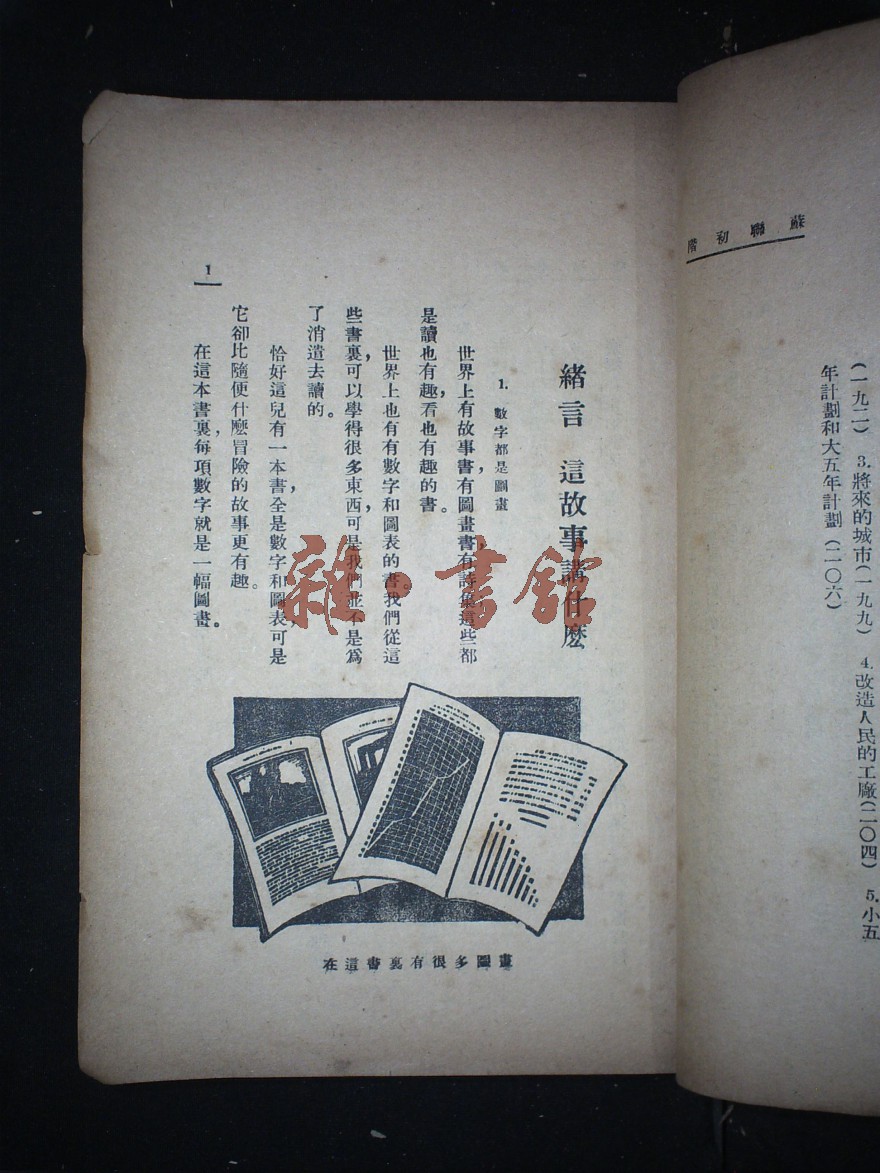 蘇聯初階
(一九二) 3.將來的城市(一九九) 4.改造人民的工廠(二〇四) 5.小五
年計劃和大五年計劃(二〇六)
緒言 這故事講什麽
1. 數字都是圖畫
世界上有故事書,有圖畫書,有詩集,這些都
是讀也有趣,看也有趣的書。
世界上也有有數字和圖表的書,我們從這
些書裏,可以學得很多東西,可是我們並不是爲
了消遣去讀的。
恰好這兒有一本書,全是數字和圖表,可是
它卻比隨便什麽冒險的故事更有趣。
在這本書裏,每項數字就是一幅圖畫。
1
在這書裏有很多圖畫
雜·書館